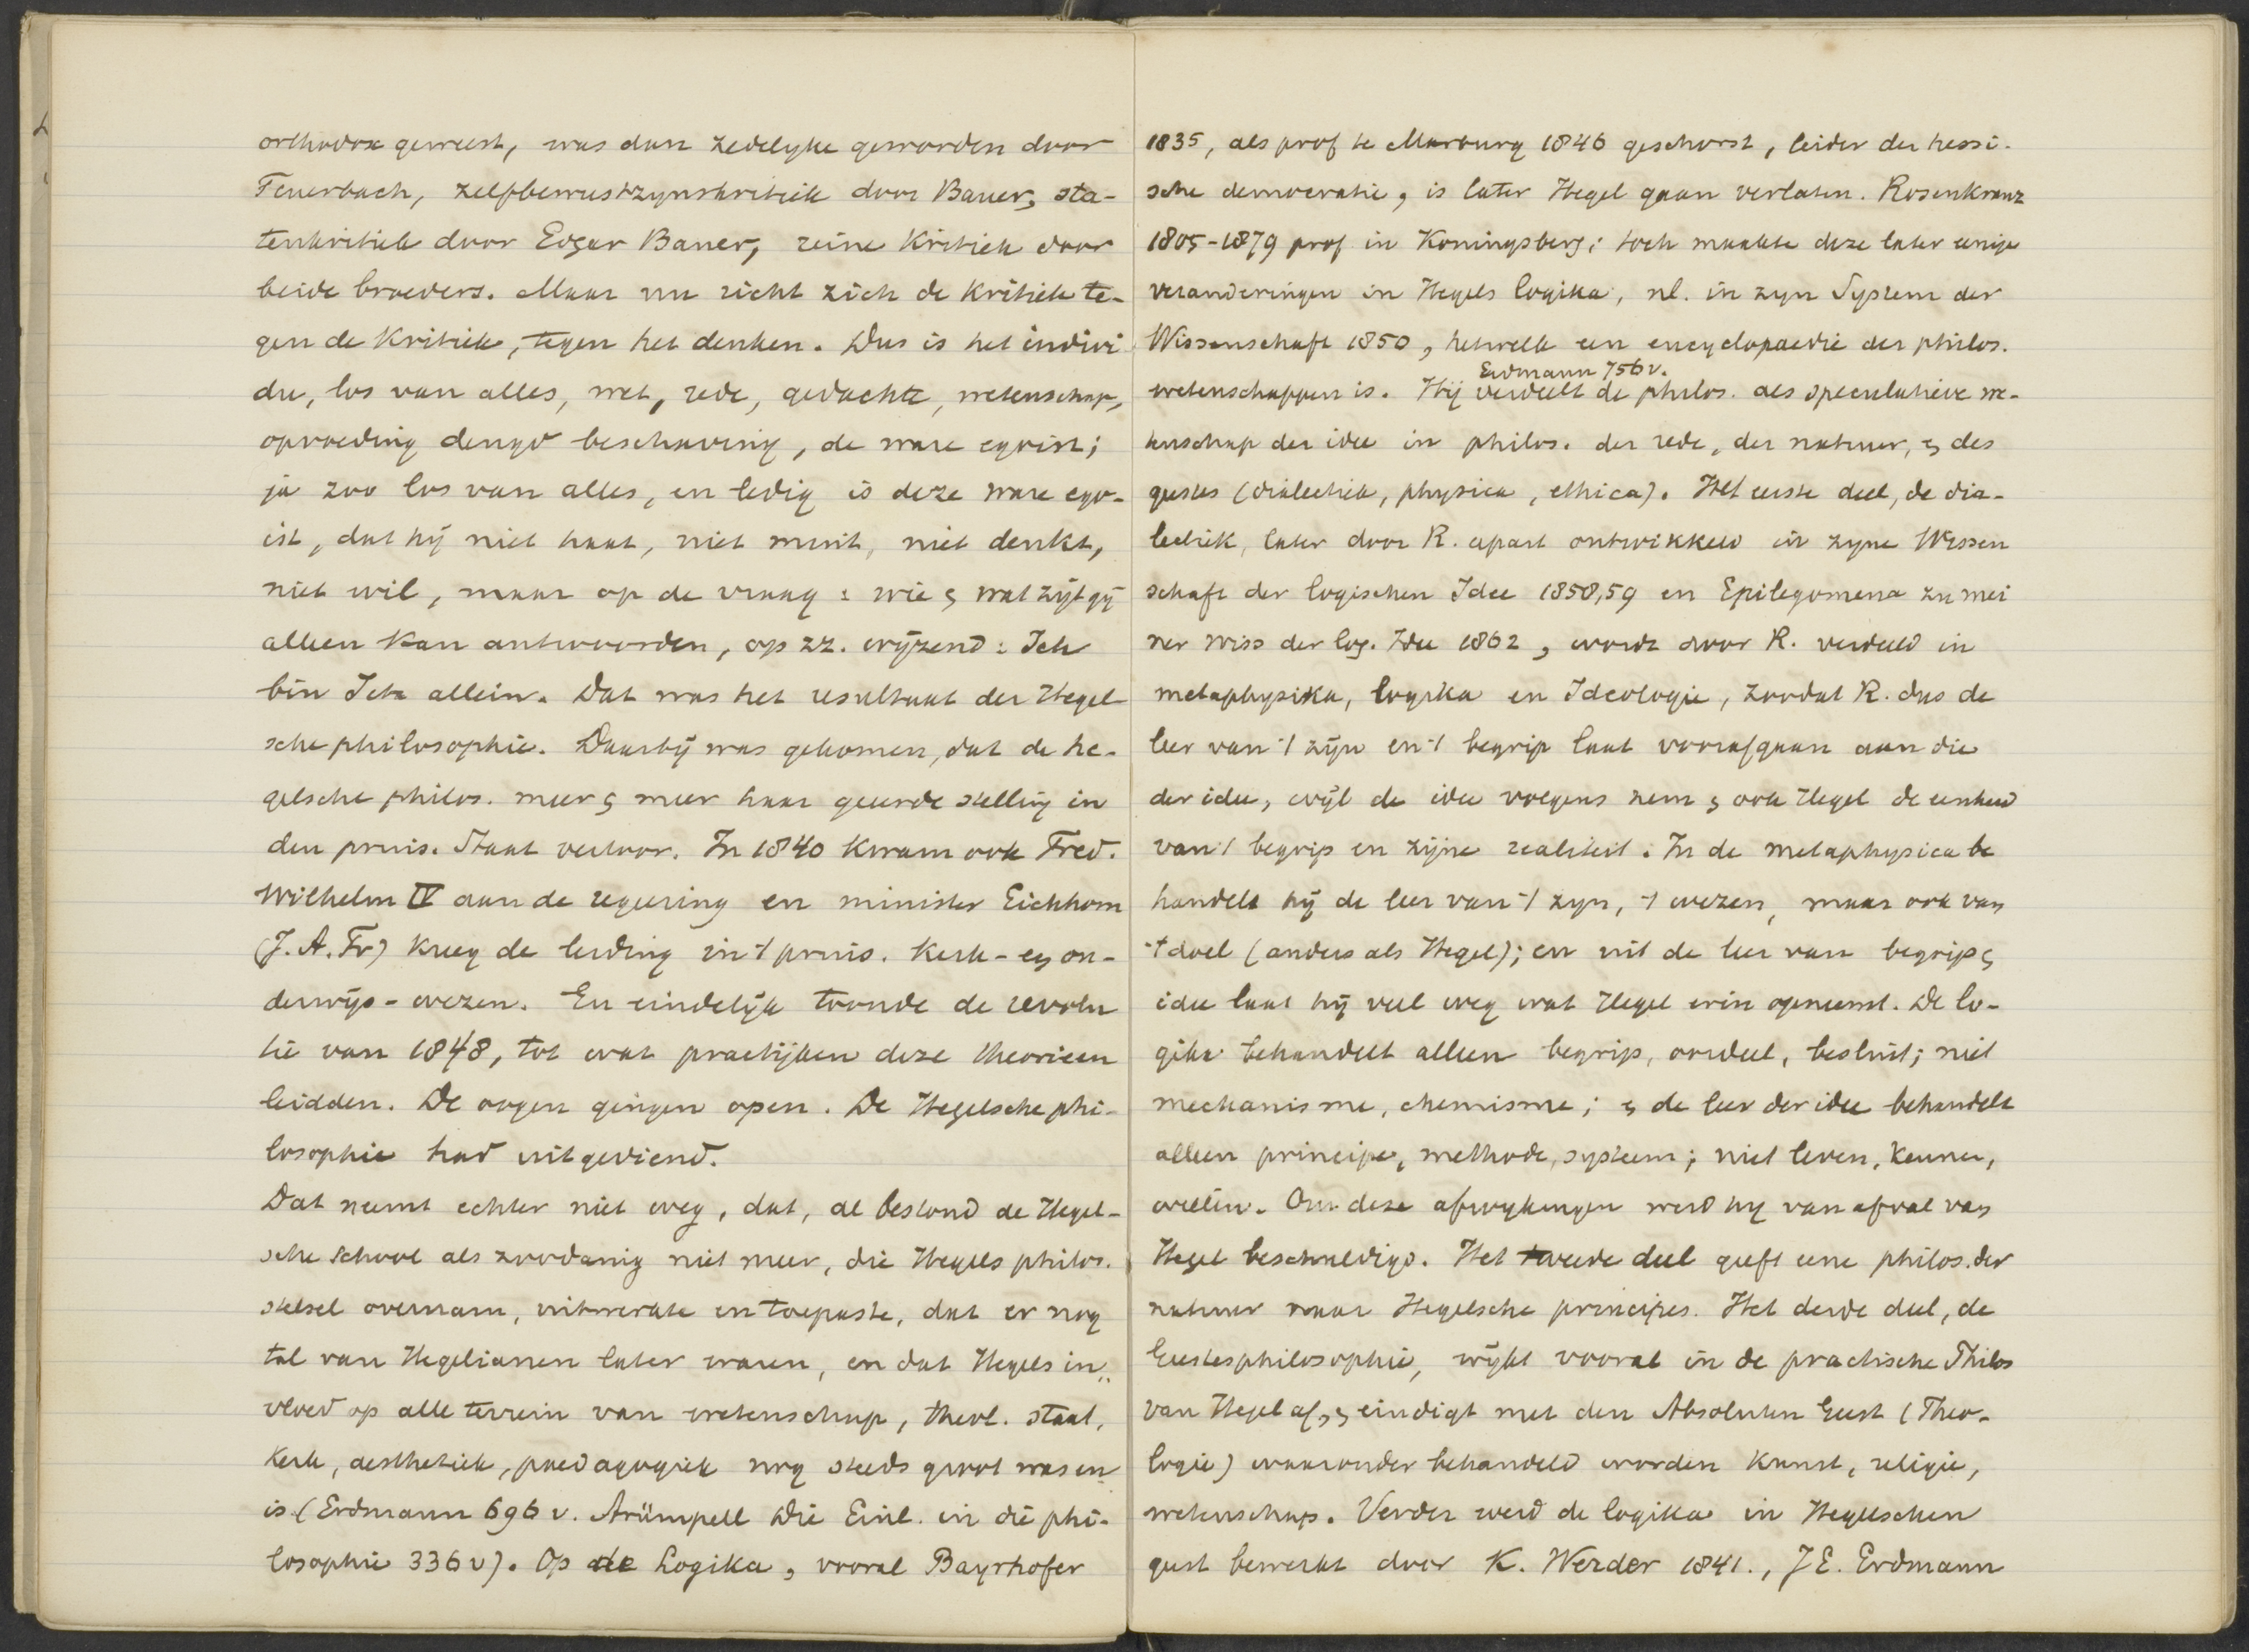 orthodox geweest, was dan zedelyke geworden door
Feuerbach, zelfbewustzynskritiek door Bauer, sta-
tenkritiek door Edgar Bauer, reine Kritiek door
beide broeders. Maar nu richt zich de Kritiek te-
gen de Kritiek, tegen het denken. Dus is het indivi
du, los van alles, wet, rede, gedachte, wetenschap,
opvoeding deugd beschaving, de ware egoist;
ja zoo los van alles, en ledig is deze ware ego-
ist, dat hij niet haat, niet mint, niet denkt,
niet wil, maar op de vraag: wie & wat zijt gij
alleen kan antwoorden, op zz. wijzend: Ich
bin Ich allein. Dat was het resultaat der Hegel-
sche philosophie. Daarbij was gekomen, dat de he-
gelsche philos. meer & meer haar geëerde stelling in
den pruis. Staat verloor. In 1840 kwam ook Fred.
Wilhelm IV aan de regeering en minister Eichhorn
(J. A. Fr) kreeg de leiding in 't pruis. kerk- en on-
derwijs-wezen. En eindelijk toonde de revolu
tie van 1848, tot wat practijken deze theorieen
leidden. De oogen gingen open. De Hegelsche phi-
losophie had uitgediend.
Dat neemt echter niet weg, dat, al bestond de Hegel-
sche School als zoodanig niet meer, die Hegels philos.
stelsel overnam, uitwerkte en toepaste, dat er nog
tal van Hegelianen later waren, en dat Hegels in„
vloed op alle terrein van wetenschap, theol. staat,
Kerk, aesthetiek, paedagogiek nog steeds groot was en
is (Erdmann 696 v. Strümpell Die Einl. in die phi-
losophie 336 v). Op de Logika, vooral Bayrhofer
1835, als prof te Marburg 1846 geschorst, leider der hessi-
sche democratie, is later Hegel gaan verlaten. Rosenkranz
1805-1879 prof in Koningsberg; toch maakte deze later eenige
veranderingen in Hegels logika, nl. in zyn System der
Wissenschaft 1850, hetwelk een encyclopaedie der philos.
wetenschappen is. Erdmann 756 v. Hij verdeelt de philos. als speculatieve we-
tenschap der idee in philos. der rede, der natuur, & des
geestes (dialectiek, physica, ethica). Het eerste deel, de dia-
lectiek, later door R. apart ontwikkeld in zyne Wissen
schaft der logischen Idee 1858,59 en Epilegomena zu mei
ner Wiss der log. Idee 1862, wordt door R. verdeeld in
metaphysika, logika en Ideologie, zoodat R. dus de
leer van 't zijn en 't begrip laat voorafgaan aan die
der idee, wijl de idee volgens hem & ook Hegel de eenheid
van 't begrip en zijne realiteit. In de metaphysica be
handelt hij de leer van 't zyn, 't wezen, maar ook van
't doel (anders als Hegel); en uit de leer van begrip &
idee laat hij veel weg wat Hegel erin opneemt. De lo-
gika behandelt alleen begrip, oordeel, besluit; niet
mechanisme, chemisme; & de leer der idee behandelt
alleen principe, methode, systeem; niet leven, kennen,
willen. Om deze afwykingen werd hy van afval van
Hegel beschuldigd. Het tweede deel geeft eene philos. der
natuur naar Hegelsche principes. Het derde deel, de
Geestesphilosophie, wijkt vooral in de practische Philos
van Hegel af, & eindigt met den Absoluten Geest (Theo-
logie) waaronder behandeld worden Kunst, religie,
wetenschap. Verder werd de logika in Hegelschen
geest bewerkt door K. Werder 1841., J E. Erdmann